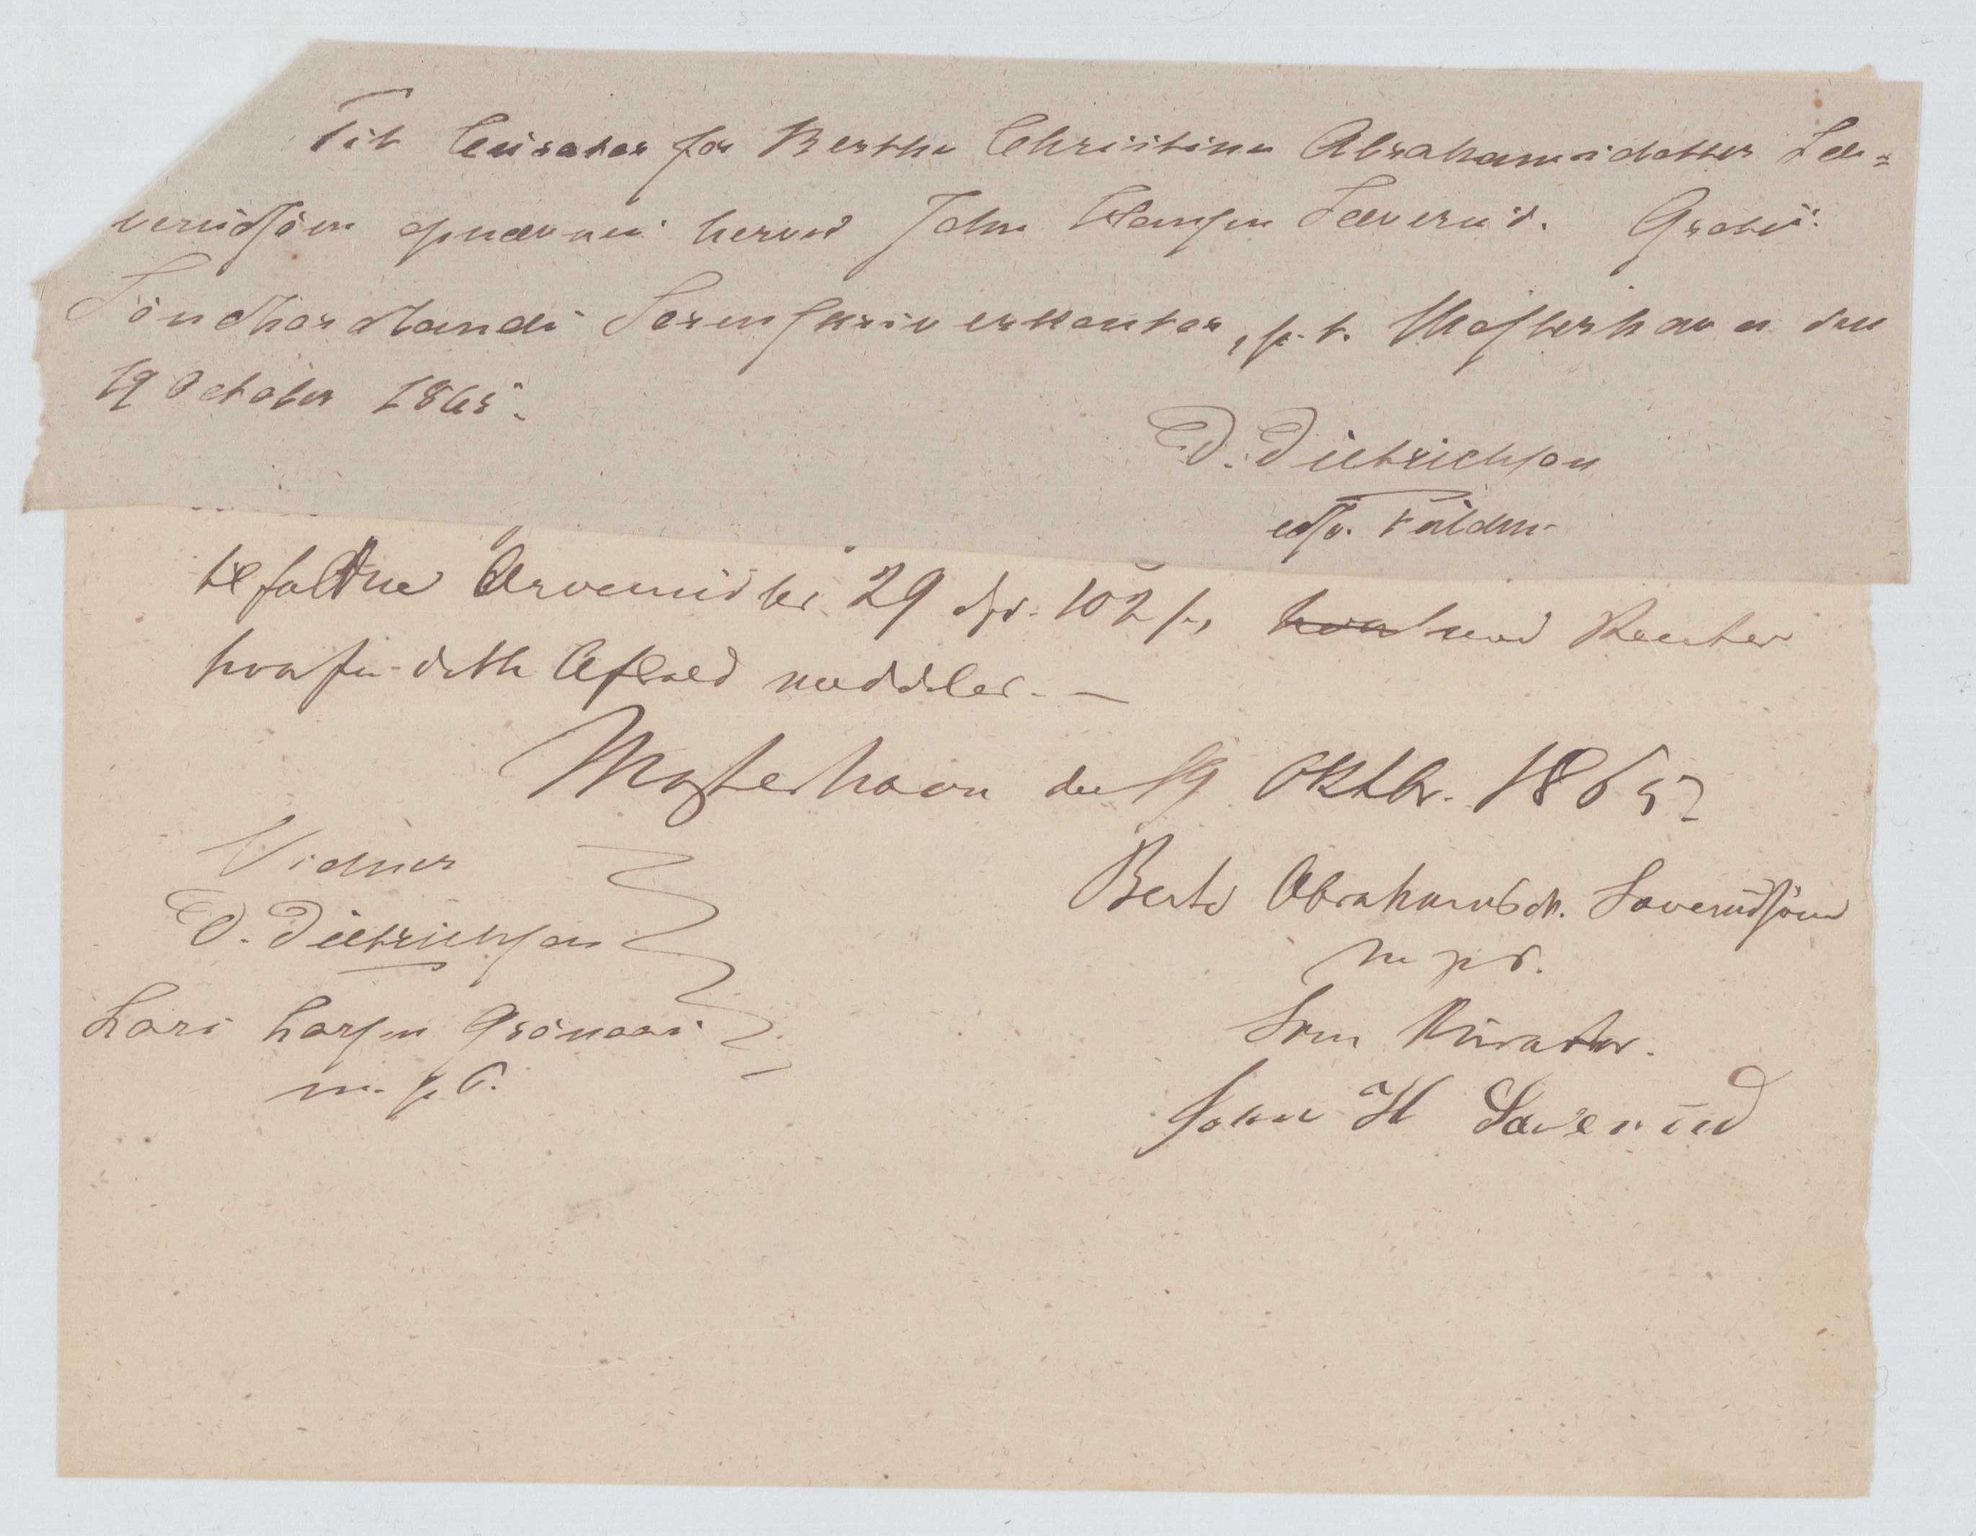 Til Curator for Berthe Christine Abrahamsdatter Læ-
verudsöen opnævnes herved John Hansen Læverud. Gratis.
Söndhordlands Sorenskriverkontor, p. t. Mosterhavn den
19 October 1865.
D. Dietrichsen
efter Fuldm.
tilfaldne Arvemidler 29 Spd. 102 s, hvor med Renter
hvorfor dette Afkald meddeles. —
Mosterhavn den 19 Oktbr. 1865
Vidner
D. Dietrichsen
Lars Larsen Grönaas
m. p. P.
Berte Abrahamsdtr. Laverudsöen
m p P.
Som Kurator.
John H Laverud